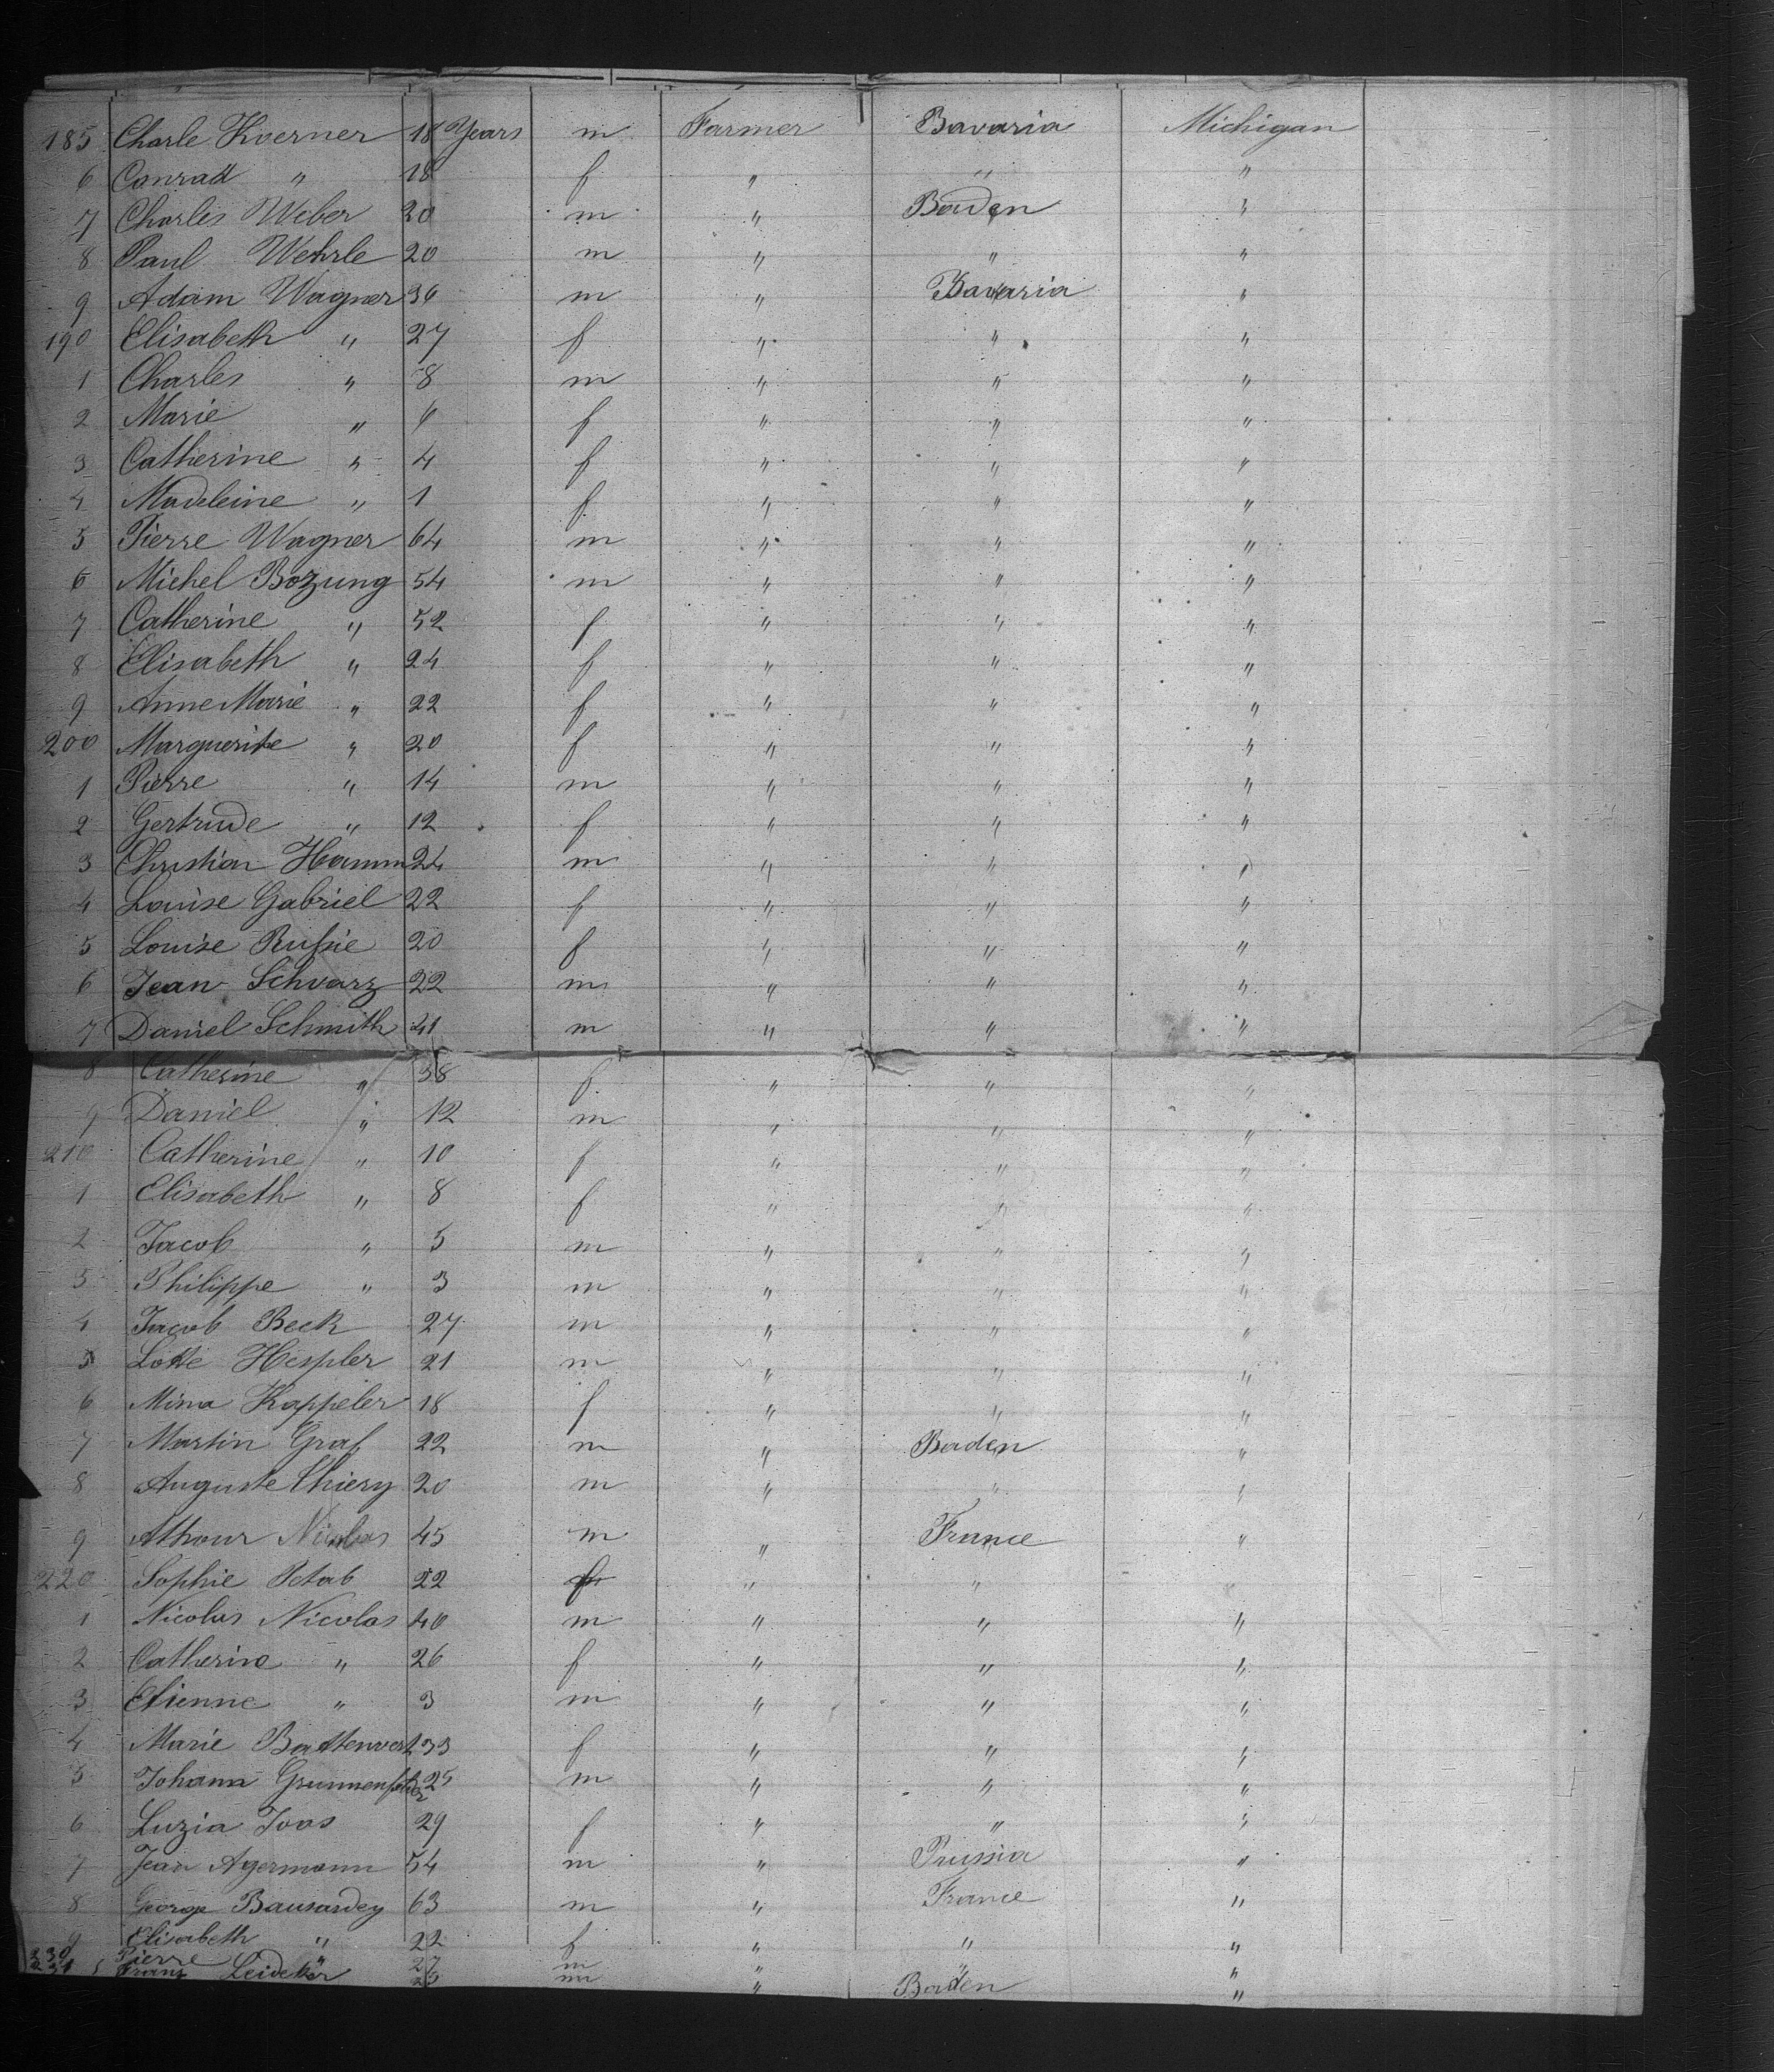 185 Charle Koerner 18 Years m Farmer Bavaria Michigan
6 Conradt " 18 f " " "
7 Charles Weber 20 m " Baden "
8 Paul Wehrle 20 m " " "
9 Adam Wagner 36 m " Bavaria "
190 Elisabeth " 27 f " " "
1 Charles " 8 m " " "
2 Marie " 6 f " " "
3 Catherine " 4 f " " "
4 Madeleine " 1 f " " "
5 Pierre Wagner 64 m " " "
6 Michel Bozung 54 m " " "
7 Catherine " 52 f " " "
8 Elisabeth " 24 f " " "
9 Anne Marie " 22 f " " "
200 Marguerite " 20 f " " "
1 Pierre " 14 m " " "
2 Gertrude " 12 f " " "
3 Christian Hamm 24 m " " "
4 Louise Gabriel 22 f " " "
5 Louise Rußie 20 f " " "
6 Jean Schvarz 22 m " " "
7 Daniel Schmith 41 m " " "
8 Catherine " 38 f " " "
9 Daniel " 12 m " " "
210 Catherine " 10 f " " "
1 Elisabeth " 8 f " " "
2 Jacob " 5 m " " "
3 Philippe " 3 m " " "
4 Jacob Beck 27 m " " "
5 Lotte Hespler 21 m " " "
6 Mina Kappeler 18 f " " "
7 Martin Graf 22 m " Baden "
8 Auguste Thiery 20 m " " "
9 Athour Nicolas 45 m " France "
220 Sophie 22 f " "
1 Nicolas Nicolas 40 m " " "
2 Catherina " 26 f " " "
3 Etienne " 3 m " " "
4 Marie Battenvert 33 f " " "
5 Johann 25 m " " "
6 Luzia Joas 29 f " " "
7 Jean Agermann 54 m " Prussia "
8 George Bausardey 63 m " France "
9 Elisabeth " 22 f " " "
230 Pierre " 27 m " " "
231 Franz Leideker m " Baden "